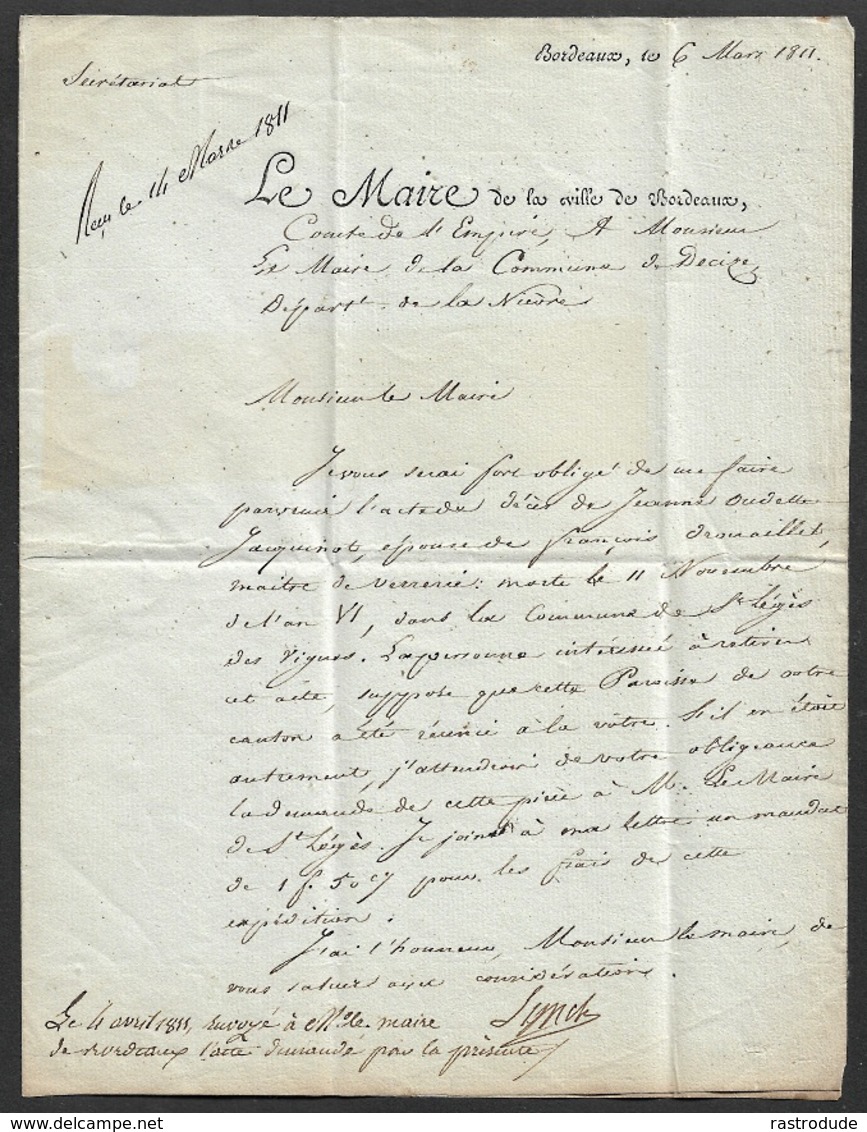 Bordeaux, le 6 Mars 1811.
Secrétariat
Reçu le 14 Marse 1811
Le Maire de la ville de Bordeaux,
Comte de l'Empire, A Monsieur
Le Maire de la Commune de Decize
Départt. de la Nièvre
Monsieur le Maire
Je vous serai fort obligé de me faire
parvenir l'acte du décès de Jeanne Oudette
Jacquinot, épouse de françois drouaillet,
maitre de verrerie: morte le 11 Novembre
de l'an VI, dans la Commune de St. Légès
des Vignes. La personne intéressée à retirer
cet acte, suppose que cette Paroisse de votre
canton a été réunie à la vôtre. S'il en étoit
autrement, j'attendrois de votre obligeance
la demande de cette pièce à M. Le Maire
de St. Légès. Je joins à ma lettre un mandat
de 1 f. 50 cs pour les frais de cette
expédition.
J'ai l'honneur, Monsieur le maire, de
vous saluer avec considération.
Lynch
Le 4 avril 1811, envoyé à Mr. le maire
de Bordeaux l'acte demandé par la présente
rastrodude